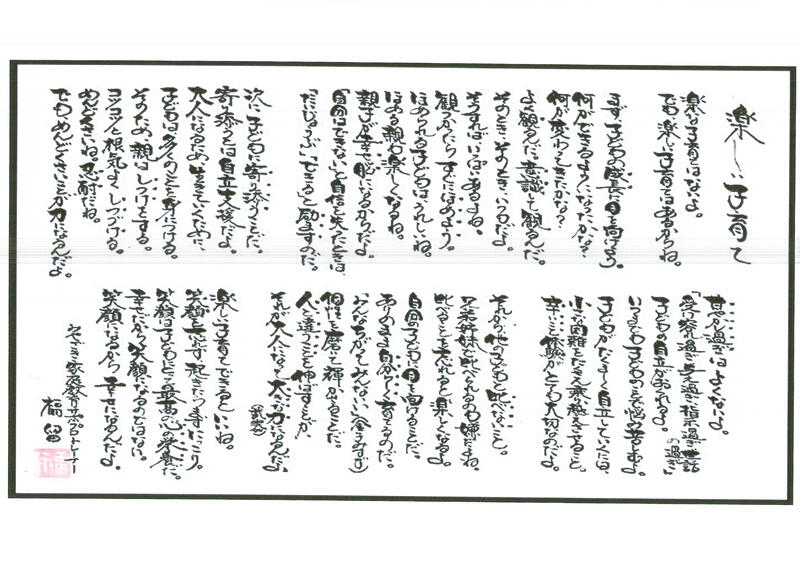 楽しい子育て
楽な子育てはないよ。
でも、楽しい子育てはあるからね。
まず、子どもの成長に目を向けよう。
何ができるようになったかな?
何が変わってきたかな?
よく観るんだ。意識して観るんだ。
そのとき、そのとき、いつもだよ。
そうすればいっぱいあるよね。
観つかったらすぐにほめよう。
ほめられる子どもはうれしいね。
ほめる親も楽しくなるね。
親子が幸せ脳になるからだよ。
「自分はできない」と自信を失ったときは、
「だいじょうぶ」「できる」と励ますのだ。
次に、子どもに寄り添うことだ。
寄り添うとは自立支援だよ。
大人になるため、生きてくために、
子どもは多くのことを身につける。
そのため、親はしつけをする。
コツコツと根気よくしつづける。
めんどくさいね。忍耐だね。
でも、めんどくさいことが力になるんだよ。
甘やかし過ぎはよくないよ。
「受け容れ過ぎ、与え過ぎ、指示し過ぎ、世話し過ぎ」の過ぎは
子どもの自立がおくれるよ。
いつまでも子どものことで悩み苦しむよ。
子どもがたくましく自立していくには、
小さな困難をたくさん乗り越えさせること。
辛いことも体験がとても大切なのだよ。
それから、他の子どもと比べないこと。
兄弟姉妹で比べられるのも嫌だよね。
比べることを忘れると楽しくなるよ。
自分の子どもに目を向けることだ。
ありのまま自分らしく育てるのだ。
「みんなちがってみんないい(金子みすゞ)」
個性を磨いて輝かせることだ。
人と違うことを伸ばすことが、
それが大人になって大きな力になるんだよ。
(武器)
楽しい子育てできるといいね。
笑顔を忘れず、起きたら寝るまでにこり。
笑顔は子どもにとって最高の心の栄養だ。
幸せだから笑顔になるのではない。
笑顔になるから幸せになるんだよ。
みやざき家庭教育サポートトレーナー
福留
福